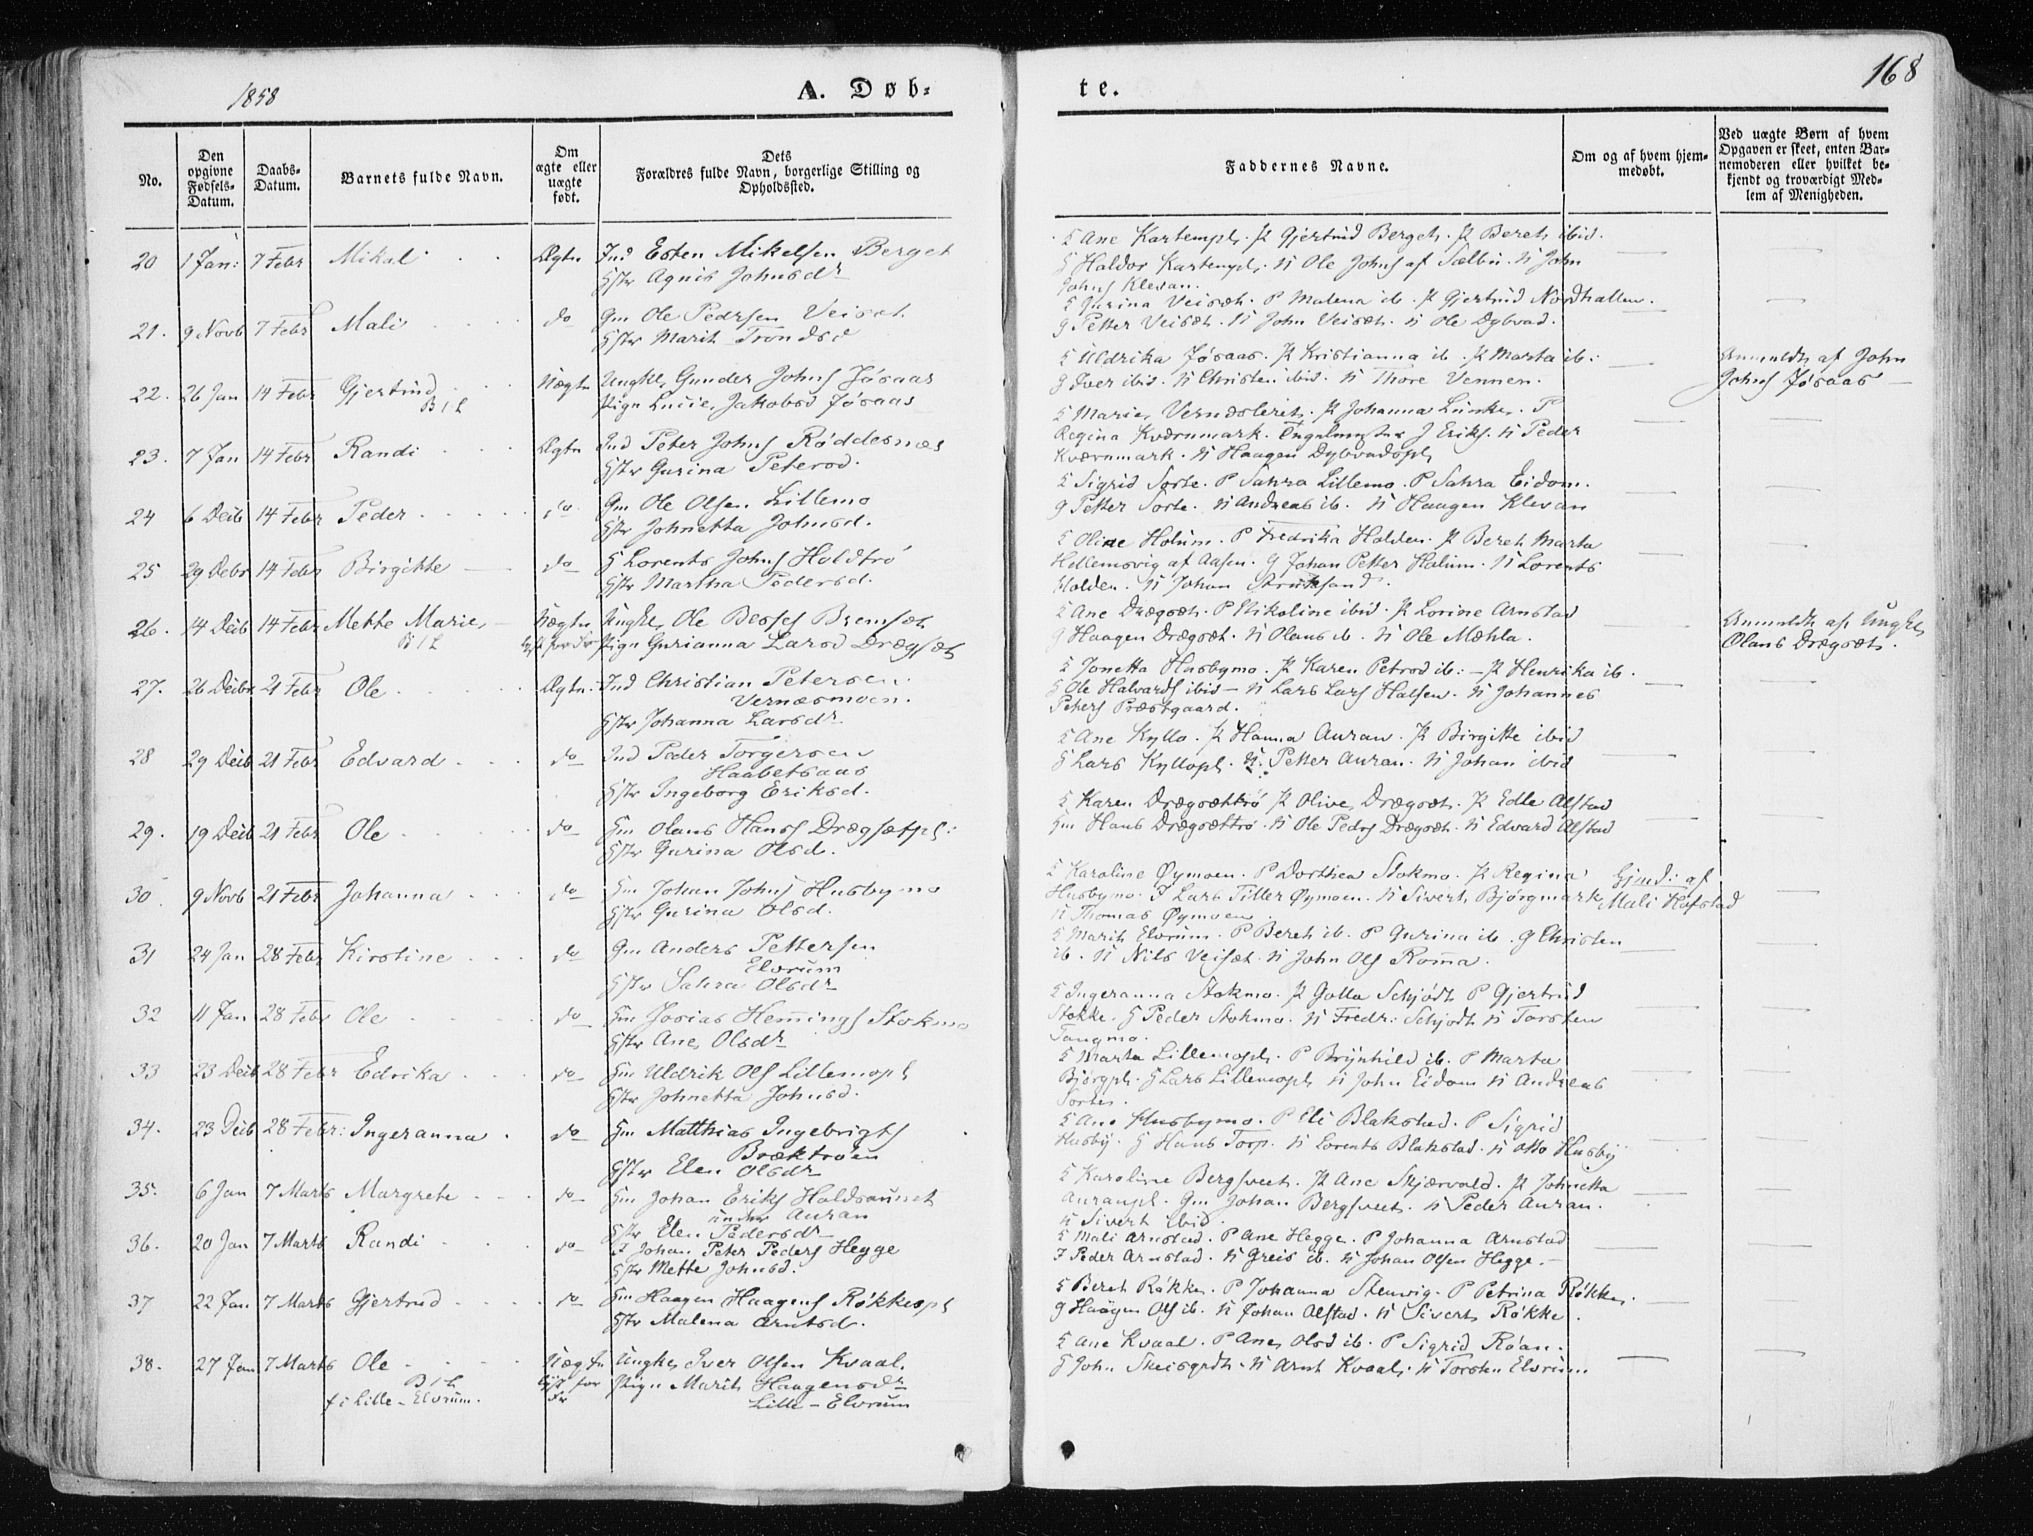 1858
A. Døb-
te.
168
No.
Den opgivne Fødsels-Datum.
Daabs-Datum.
Barnets fulde Navn.
Om ægte eller uægte født.
Dets Forældres fulde Navn, borgerlige Stilling og Opholdssted.
Faddernes Navne.
Om og af hvem hjem-medøbt.
Ved uægte Børn af hvem Opgaven er skeet, enten Bar-nemoderen eller hvilket be-kjendt og troværdigt Med-lem af Menigheden.
20 1 Jan: 7 Febr Mikal Ægte Ind Esten Mikelsen Berget
Hstr Agnis Johnsdr
Ane Kartempl. Gjertrud Berget. Beret ibid.
Haldor Kartempl. N Ole Johns af Sælbu. N John
Johns Klevan.
21. 9 Novb 7 Febr Mali do Gm Ole Pedrsen Veisæt
Hstr Marit Trondsd
Gurina Veisæt. P Malena ib. Gjertrud Nordhallen.
G Petter Veisæt. N John Veisæt. N Ole Dybvad.
22. 26 Jan 14 Febr Gjertrud Uægte Ungkl Gunder Johns Jøsaas
Pign Lucie Jakobsd Jøsaas
Uldrika Jøsaas. Kristianna ib. Marta ib.
G Iver ibid. N Christen ibid. N Thore Vennen.
Anmeldt af John
Johns Jøsaas
23. 7 Jan 14 Febr Randi Ægte Ind Peter Johns Røddesnæs
Hstr Gurina Petersd.
Marie Verndsleret. Johanna Lunke. P
Regina Kværnmark. J Eriks. N Peder
Kværnmark. N Haagen Dybvadspl
24 6 Decb 14 Febr Peder do Gm Ole Olsen Lillemo
Hstr Johnetta Johnsd.
Sigrid Sorte. P Sahra Lillemo. P Sahra Eidom.
G Petter Sorte. N Andreas ib. N Haagen Klevan
25 29 Decbr 14 Febr Birgitte do Lorents Johns Holdtrø
Hstr Martha Pedersd.
Oline Holum. P Fredrika Holden. Beret Marta
Hellemsvig af Aasen. G Johan Petter Holum. N Lorents
Holden. N Johan
26. 14 Decb 14 Febr Mette Marie Uægte Ungkl Ole Berss Bremsæt
Pign Gurianna Larsd Drægsæt
Ane Drægsæt. P Nikoline ibid. Lorine Arnstad
G Haagen Drægsæt. N Olaus ib. N Ole Mæhla.
Anmeldt af Ungkl
Olaus Drægsæt.
27. 26 Decbr 21 Febr Ole Ægte Ind Christian Petersen
Vernæsmoen.
Hstr Johanna Larsdr
Jonetta Husbymo. Karen Petrsd ib: Henrika ib.
Ole Halvards ibid N Lars Lars Halsen. N Johannes
Peters Præstgaard.
28 29 Decb 21 Febr Edvard do Ind Peder Torgersen
Haabetsaas
Hstr Ingeborg Eriksd.
Ane Kyllo. Hanna Auran. Birgitte ibid
Lars Kyllopl. N. Petter Auran. N Johan ibid
29. 19 Decb 21 Febr Ole do Hm Olaus Hans Drægsætpl:
Hstr Gurina Olsd.
Karen Drægsættrø Olive Drægsæt. Edle Alstad
Hm Hans Drægsættrø. N Ole Pedrs Drægsæt. N Edvard Alstad
30 9 Novb 21 Febr Johanna do Hm Johan Johns Husbymo
Hstr Gurina Olsd.
Karoline Øymoen. P Dorthea Stokmo. Regina
Husbymo. I Lars Tiller Øymoen. N Sivert Bjørgmark
N Thomas Øymoen.
Hjmd: af
Mali Hofstad
31 24 Jan 28 Febr Kirstine do Gm Anders Pettersen
Elvrum
Hstr Sahra Olsdr
Marit Elvrum. P Beret ib. P Gurina ib. G Christen
ib. N Nils Veisæt. N John Ols Roma.
32 11 Jan 28 Febr Ole do Hm Josias Hemings Stokmo
Hstr Ane Olsdr
Ingeranna Stokmo. Golla Schjødt P Gjertrud
Stokke. Peder Stokmo. N Fredr: Schjødt N Torsten
Tangmo.
33 23 Decb 28 Febr Edrika do Hm Uldrik Ols Lillemopl
Hstr Johnetta Johnsd.
Marta Lillemopl. P Brynhild ib. P Marta
Bjørgpl. Lars Lillemopl N John Eidom N Andreas
Sorte.
34. 23 Decb 28 Febr: Ingeranna do Hm Matthias Ingebrigts
Bræktrøen
Hstr Elen Olsdr
Ane Husbymo. P Eli Blakstad. P Sigrid
Husby. Hans Torp. N Lorents Blakstad. N Otto Husby
35. 6 Jan 7 Marts Margrete do Hm Johan Eriks Haldsaunet
under Auran
Hstr Elen Pedersdr
Karoline Bergsveet. Ane Skjærvold. Johnetta
Auranpl. Gm Johan Bergsveet. N Peder Auran.
N Sivert ibid.
36. 20 Jan 7 Marts Randi do I Johan Peter Peders Hegge
Hstr Mette Johnsd.
Mali Arnstad. P Ane Hegge. P Johanna Arnstad
I Peder Arnstad. N Greis ib. N Johan Olsen Hegge.
37 22 Jan 7 Marts Gjertrud do Hm Haagen Haagens Røkkespl
Hstr Malena Arntsd.
Beret Røkke. P Johanna Stenvig. P Petrina Røkke.
G Haagen Ols ib. N Johan Alstad. N Sivert Røkke.
38. 27 Jan 7 Marts Ole Uægte Ungkl Iver Olsen Kvaal.
f i Lille-Elvrum. Pign Marit Haagensdr
Lille-Elvrum
Ane Kvaal. P Ane Olsd ib. P Sigrid Røan.
John Skeisgrdt. N Arnt Kvaal. N Torsten Elvrum.